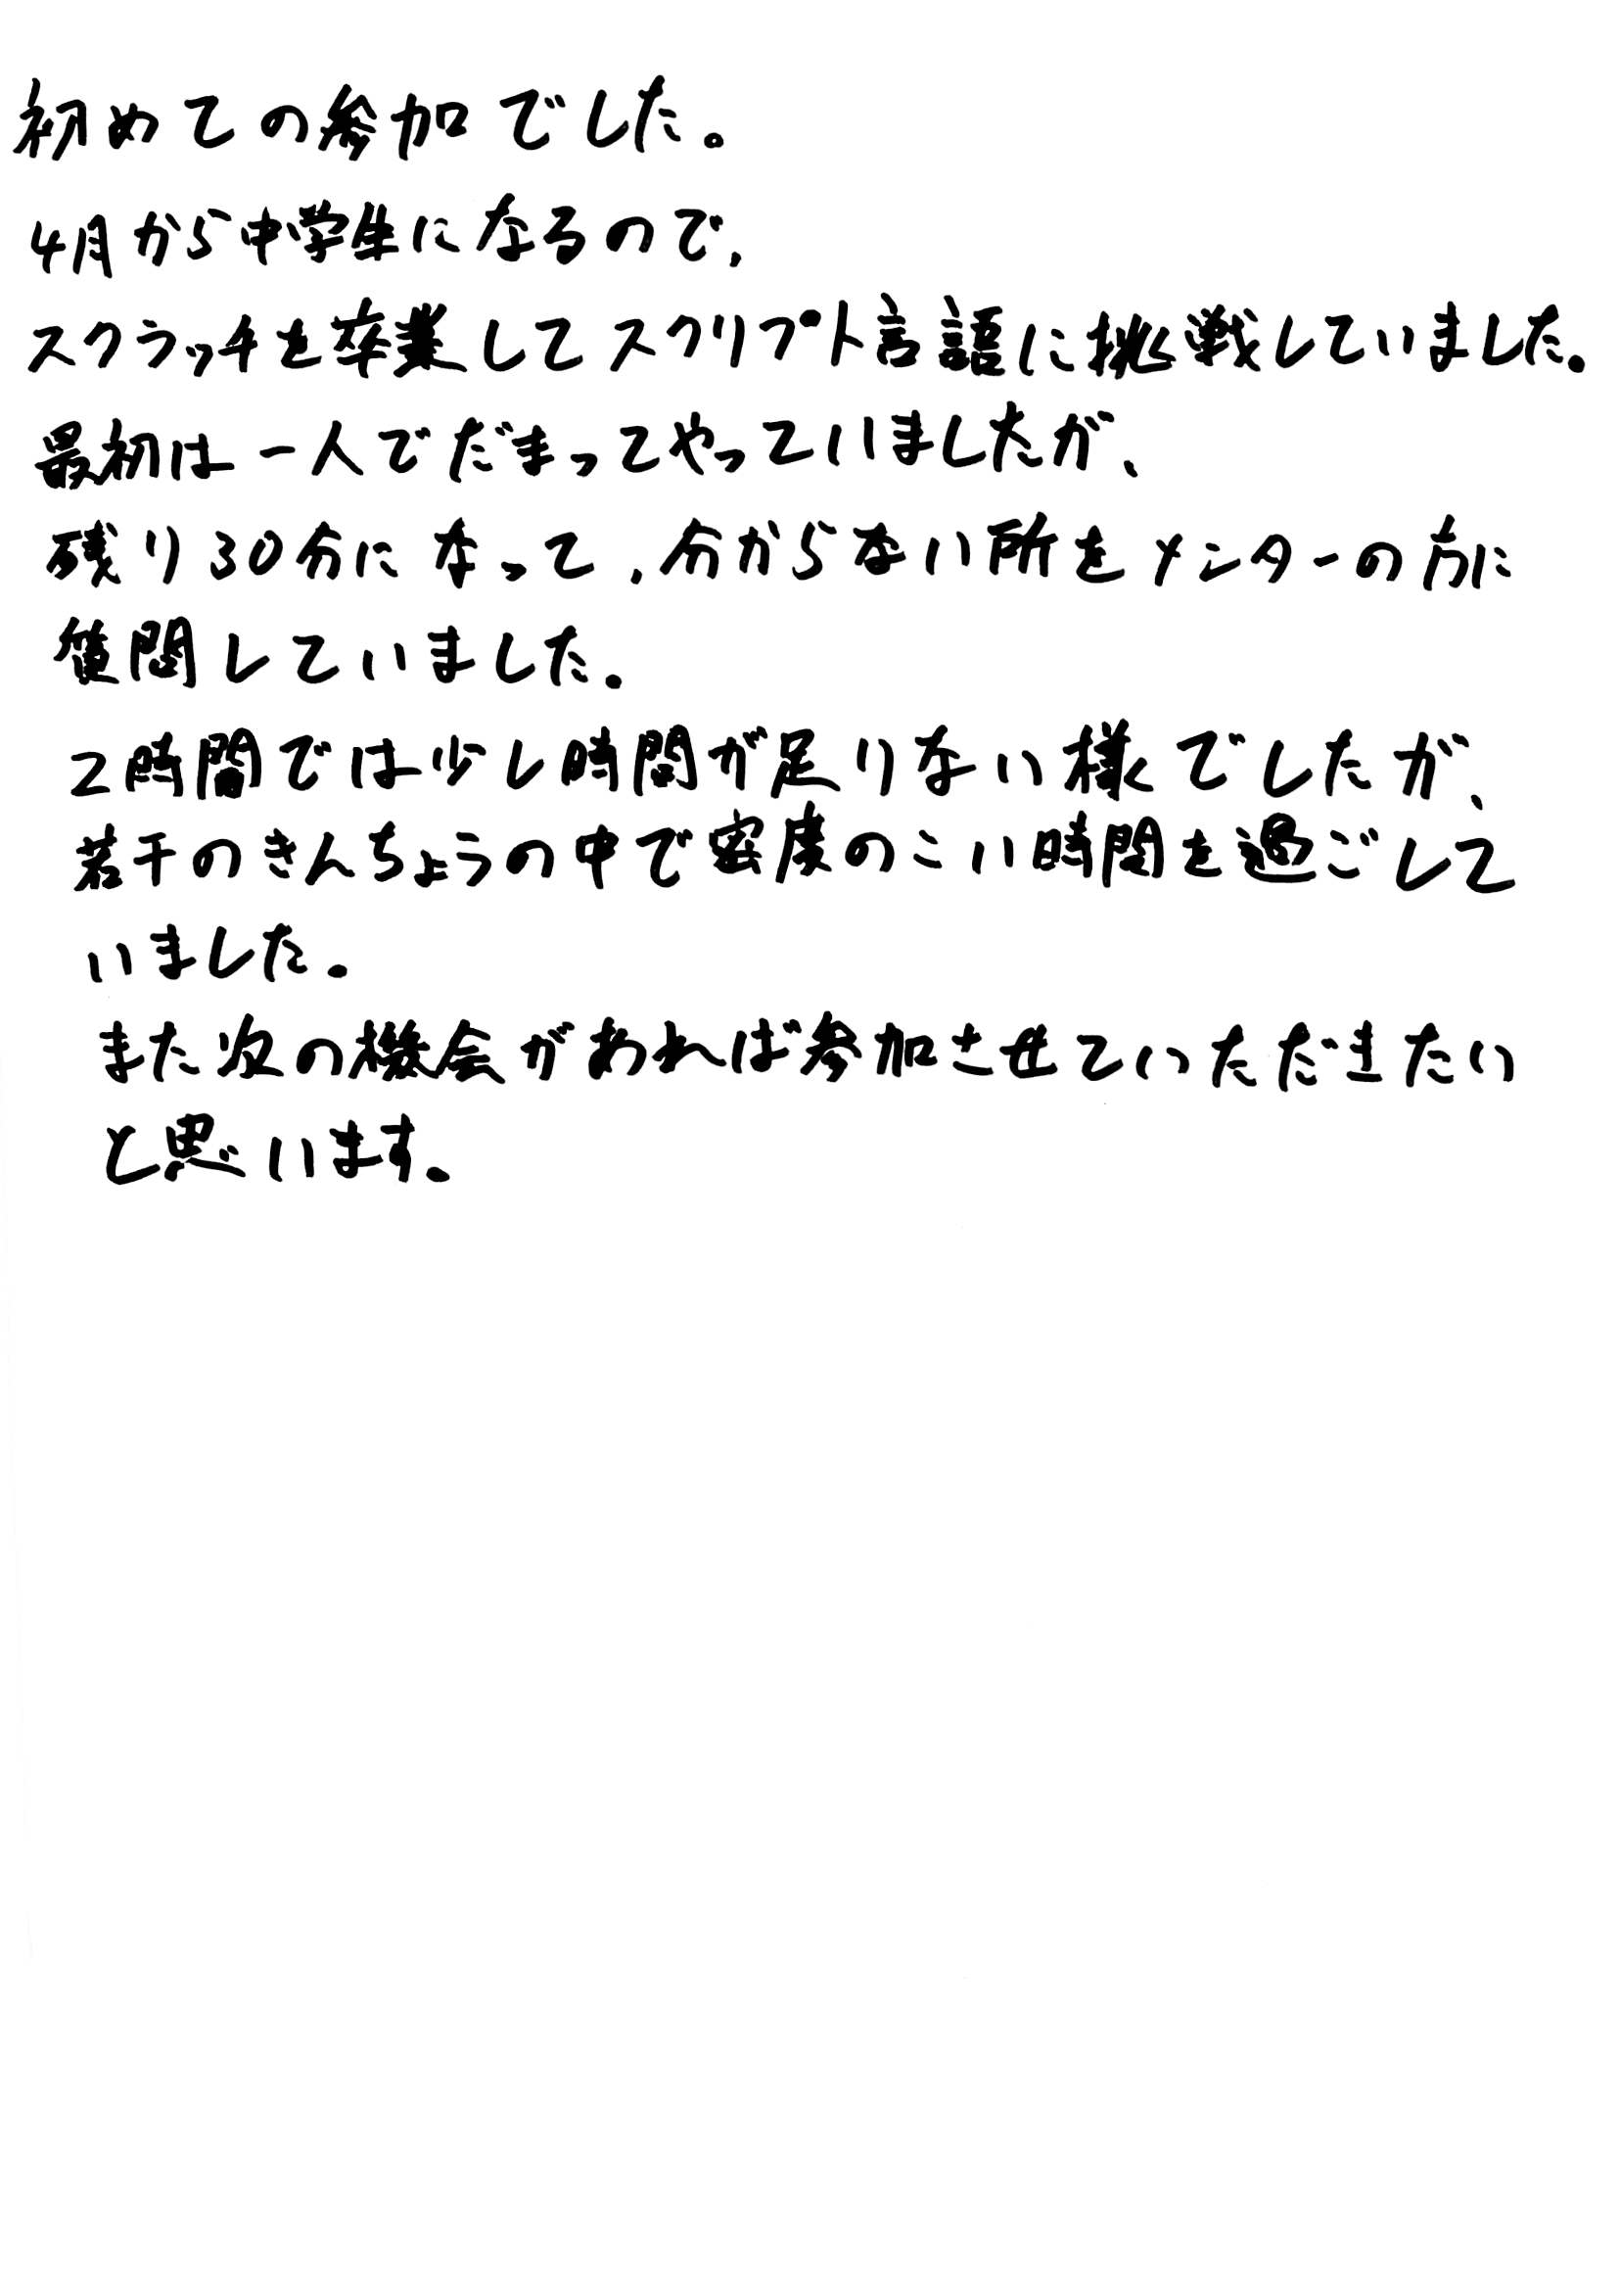 初めての参加でした。
4月から中学生になるので、
スクラッチを卒業してスクリプト言語に挑戦していました。
最初は一人でだまってやっていましたが、
残り30分になって、分からない所をメンターの方に
質問していました。
2時間では少し時間が足りない様でしたが、
若干のきんちょうの中で密度のこい時間を過ごして
いました。
また次の機会があれば参加させていただきたい
と思います。